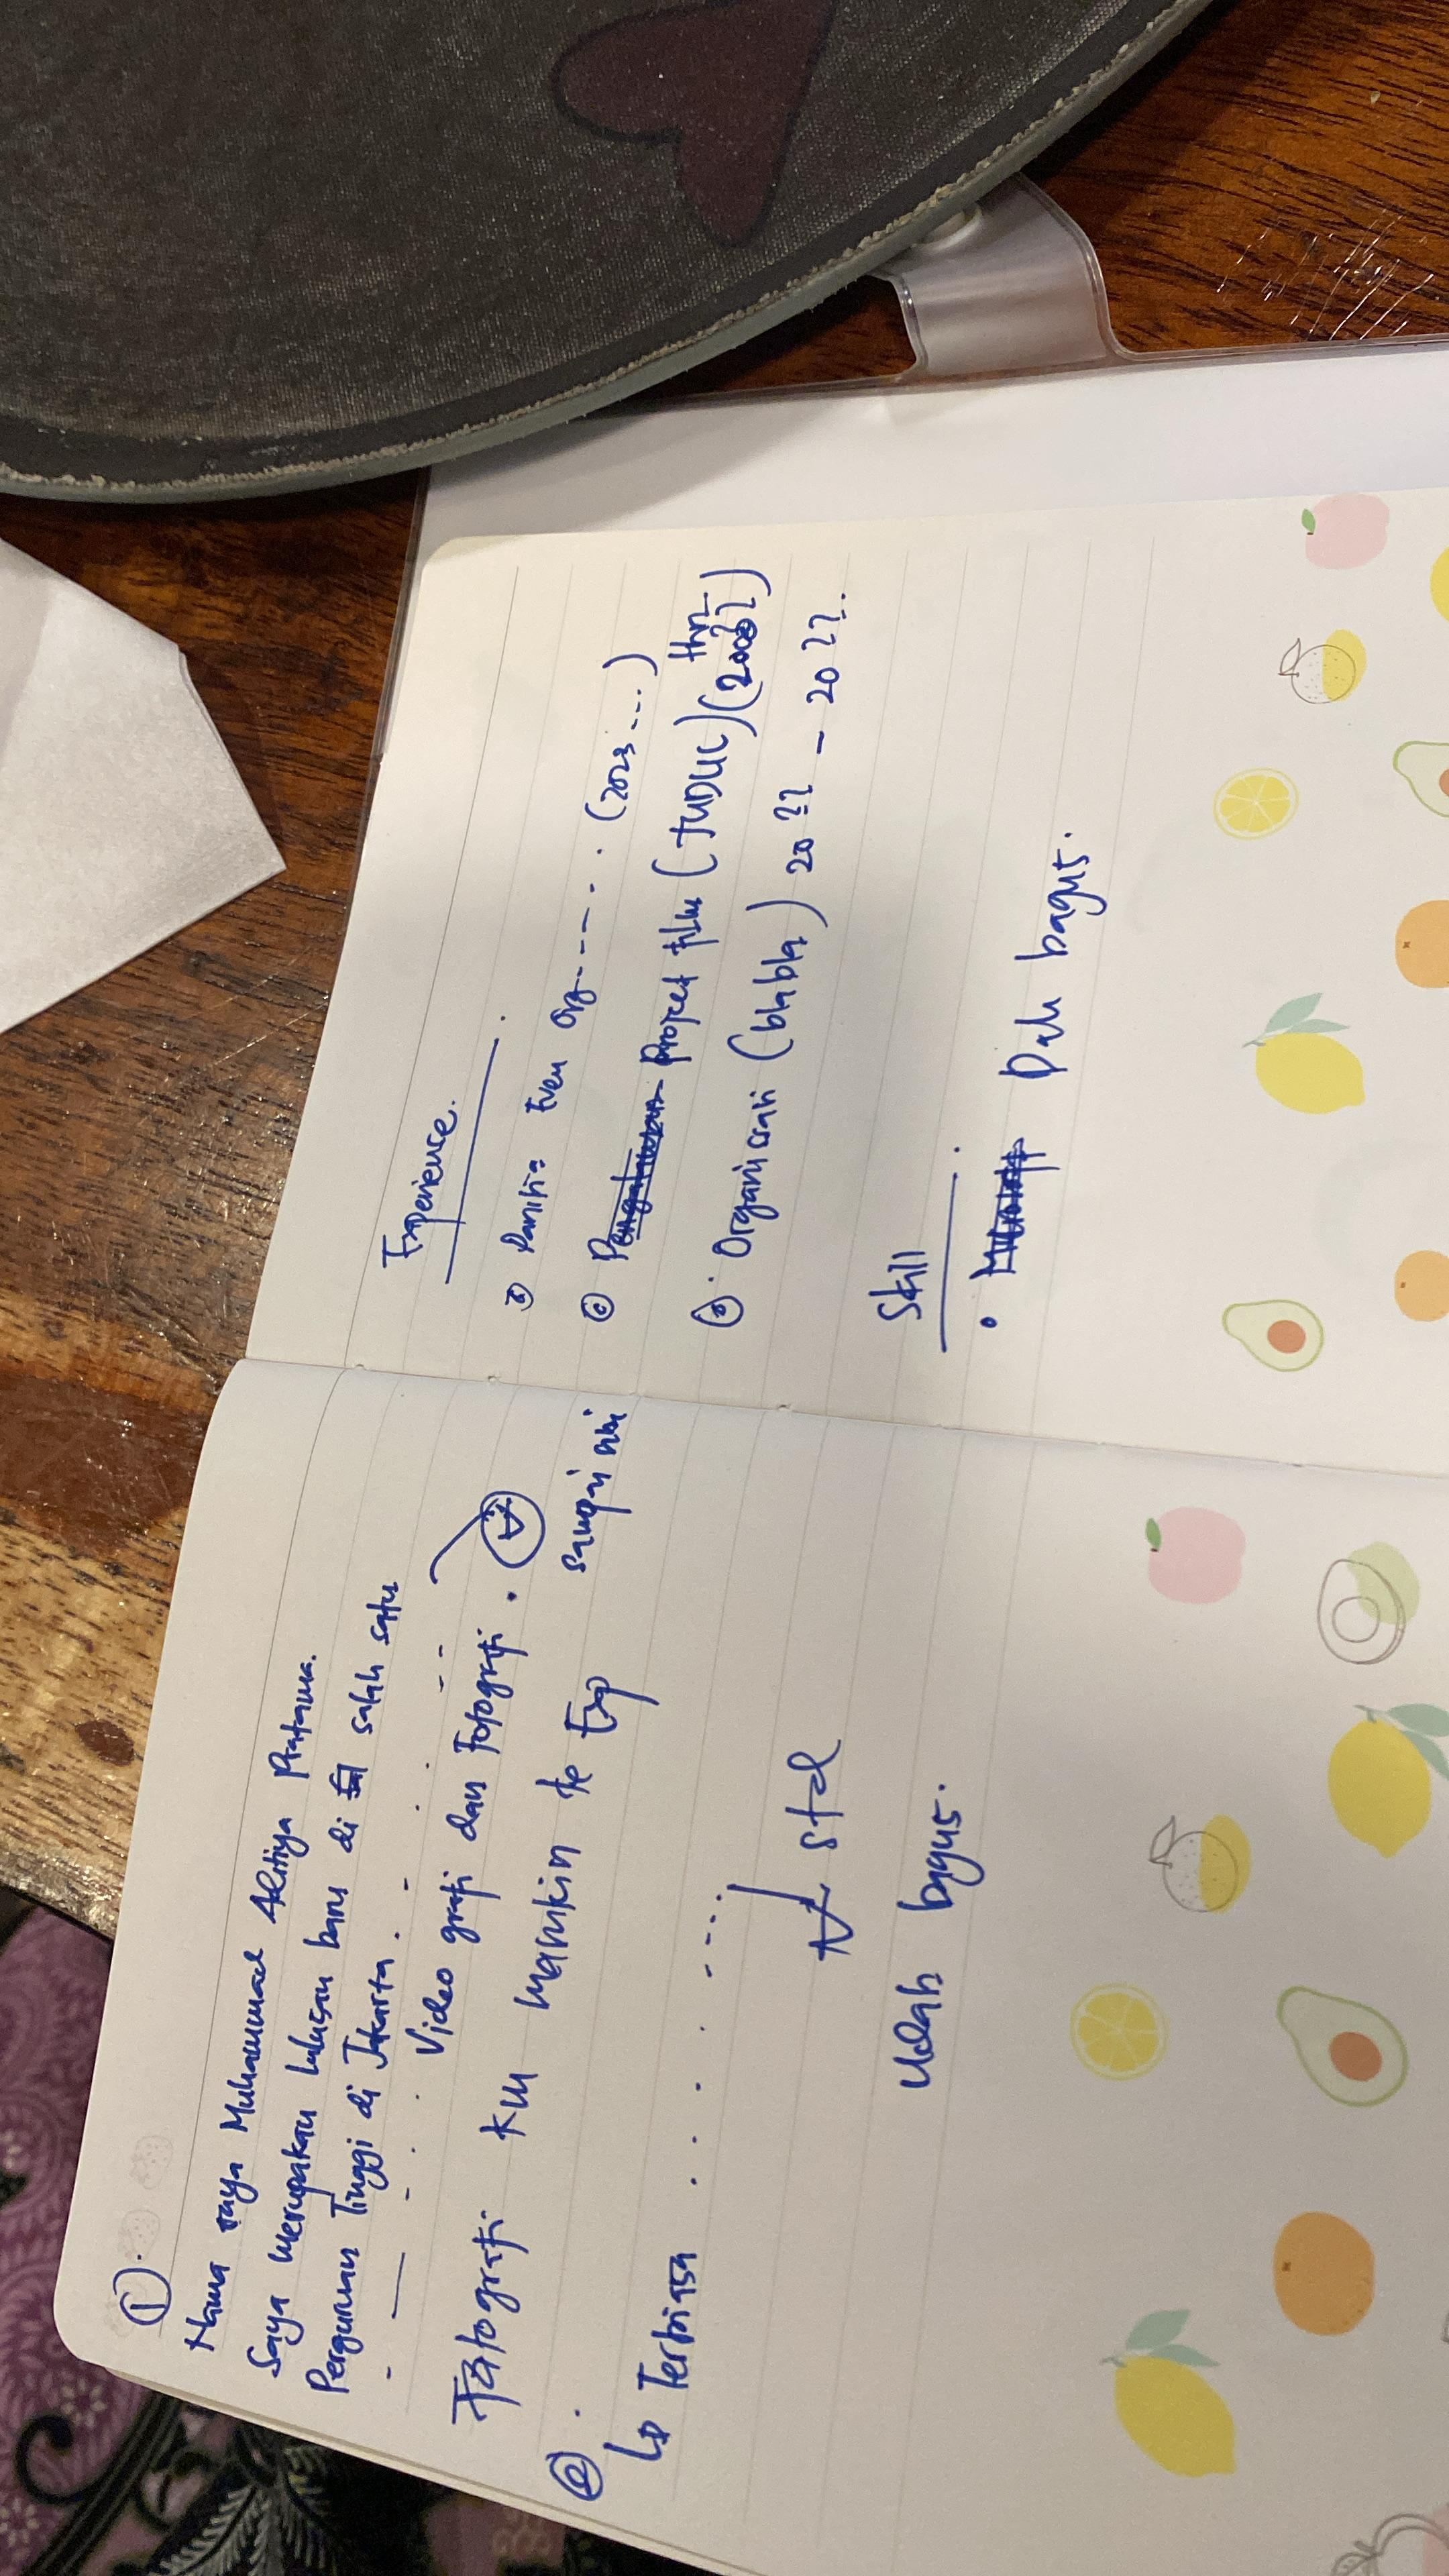 ①.
Nama saya Muhammad Aditiya Pratama.
Saya merupakan lulusan baru di salah satu
Perguruan Tinggi di Jakarta. - . - -
- — - . . Video grafi dan Fotografi.
Fotografi km masukin ke Exp
②. sampai sini
↳ Terbiasa . . . . - ...
std
Udah bagus.
Experience.
① Panitia Even Org----. (2023...)
② Project film (JUDUL) (20??) thn
③. Organisasi (blabla) 20?? - 20??.
Skill
• Dah bagus.